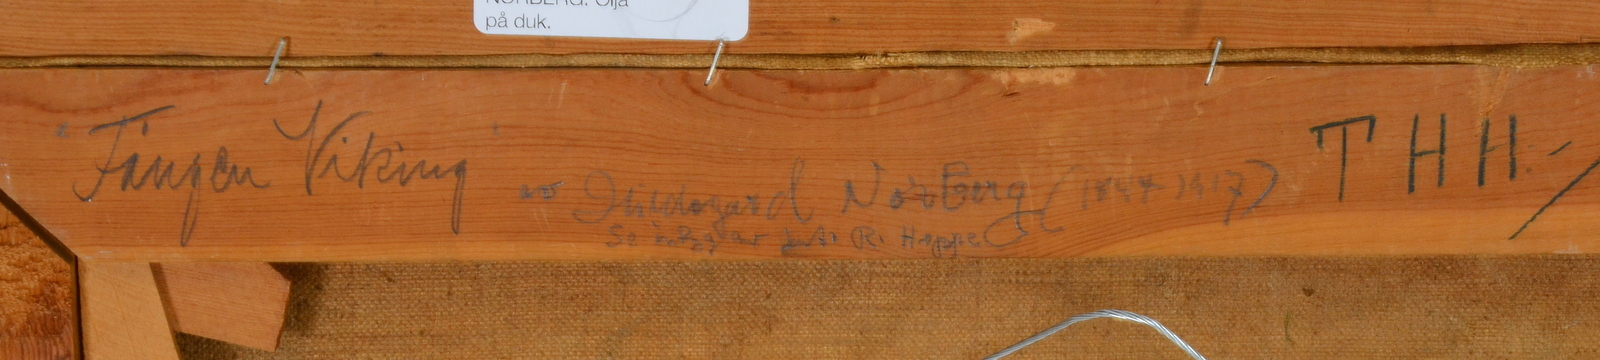 NORBERG. Olja
på duk.
"Fången Viking" av Hildegard Norberg (1844-1917) THH:-
R. Hoppe